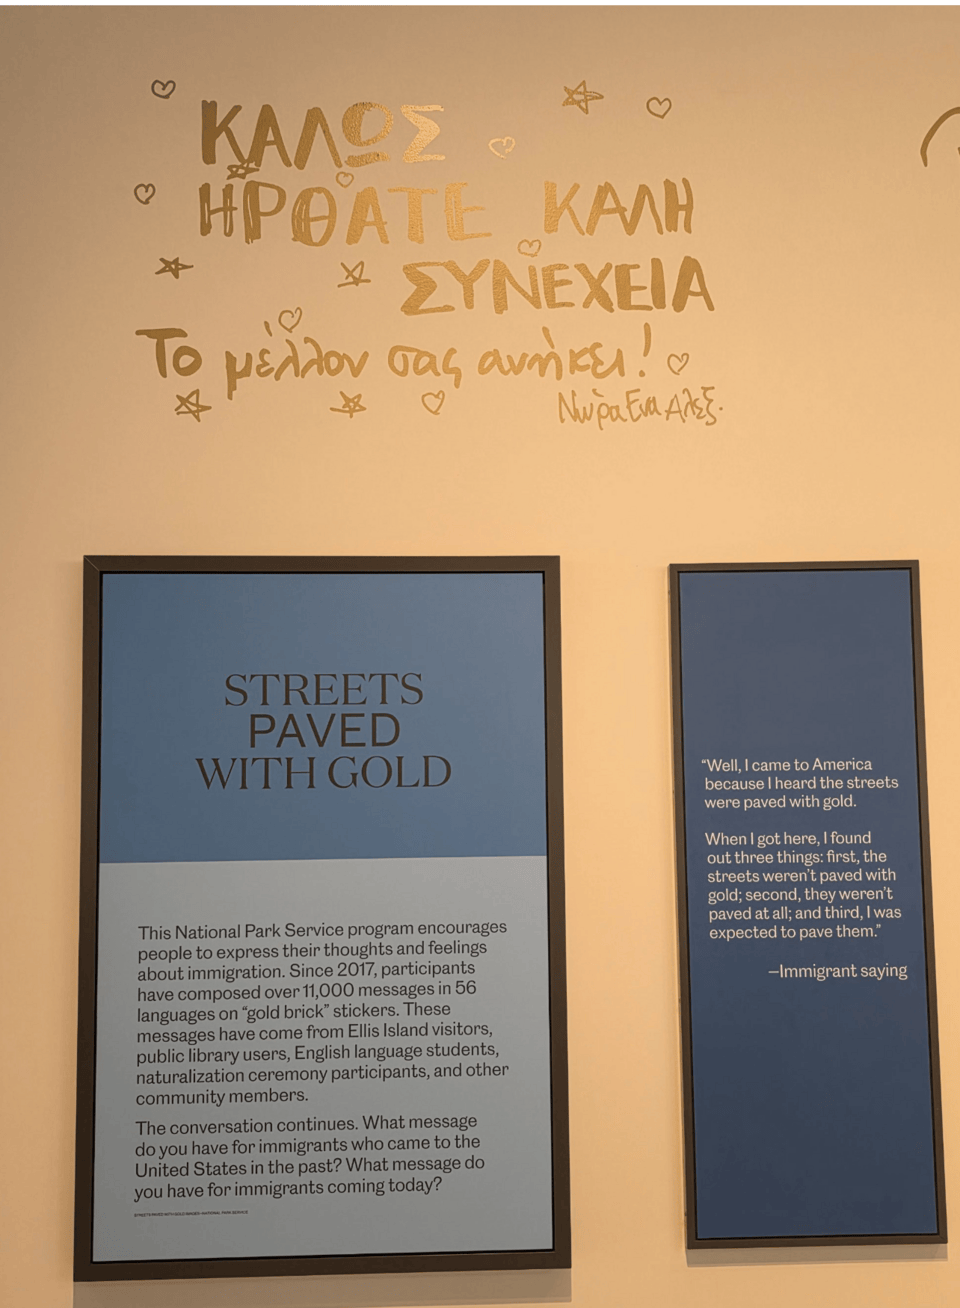 ΚΑΛΩΣ
ΗΡΘΑΤΕ ΚΑΛΗ
ΣΥΝΕΧΕΙΑ
Το μέλλον σας ανήκει!
Νώρα Ενα Αλεξ.
STREETS
PAVED
WITH GOLD
This National Park Service program encourages
people to express their thoughts and feelings
about immigration. Since 2017, participants
have composed over 11,000 messages in 56
languages on “gold brick” stickers. These
messages have come from Ellis Island visitors,
public library users, English language students,
naturalization ceremony participants, and other
community members.
The conversation continues. What message
do you have for immigrants who came to the
United States in the past? What message do
you have for immigrants coming today?
“Well, I came to America
because I heard the streets
were paved with gold.
When I got here, I found
out three things: first, the
streets weren’t paved with
gold; second, they weren’t
paved at all; and third, I was
expected to pave them.”
—Immigrant saying